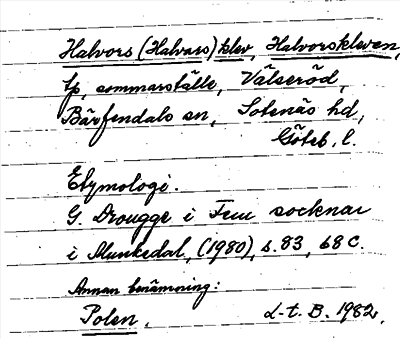 Halvors (Halvars) klev, Halvorskleven,
tp, sommarställe, Välseröd,
Bärfendals sn, Sotenäs hd,
Göteb. l.
Etymologi.
G. Drougge i Fem socknar
i Munkedal, (1980), s. 83, 68 C.
Annan benämning:
Polen.
L-t. B. 1982.